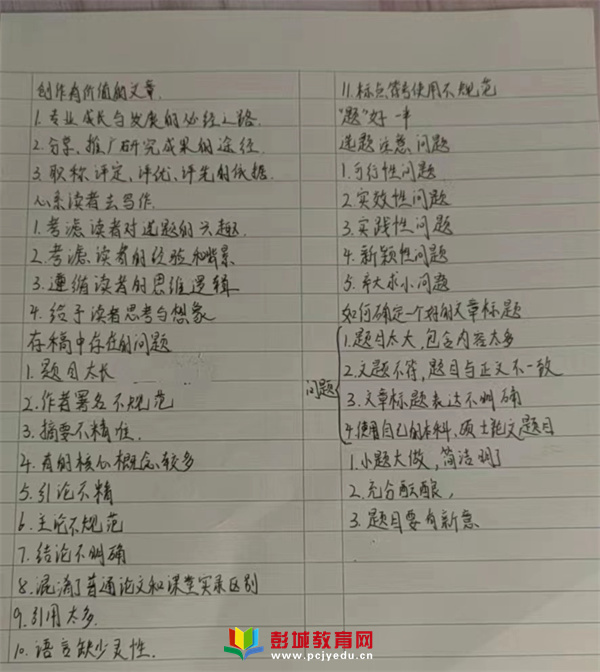 创作有价值的文章.
1.专业成长与发展的必经之路.
2.分享、推广研究成果的途径
3.职称评定、评优、评先的依据.
心系读者去写作.
1.考虑读者对选题的兴趣.
2.考虑读者的经验和背景
3.遵循读者的思维逻辑
4.给予读者思考与想象
存稿中存在的问题
1.题目太长
2.作者署名不规范
3.摘要不精准.
4.有的核心概念较多
5.引论不精
6.主论不规范
7.结论不明确
8.混淆了普通论文和课堂实录区别
9.引用太多.
10.语言缺少灵性.
11.标点符号使用不规范
"题"好一半
选题注意问题
1.可行性问题
2.实效性问题
3.实践性问题
4.新颖性问题
5.大求小问题
如何确定一个好的文章标题
问题
1.题目太大,包含内容太多
2.文题不符,题目与正文不一致
3.文章标题表达不明确
4.使用自己的本科、硕士论文题目
1.小题大做,简洁明了
2.充分酝酿,
3.题目要有新意
彭城教育网
www.pcjyedu.cn